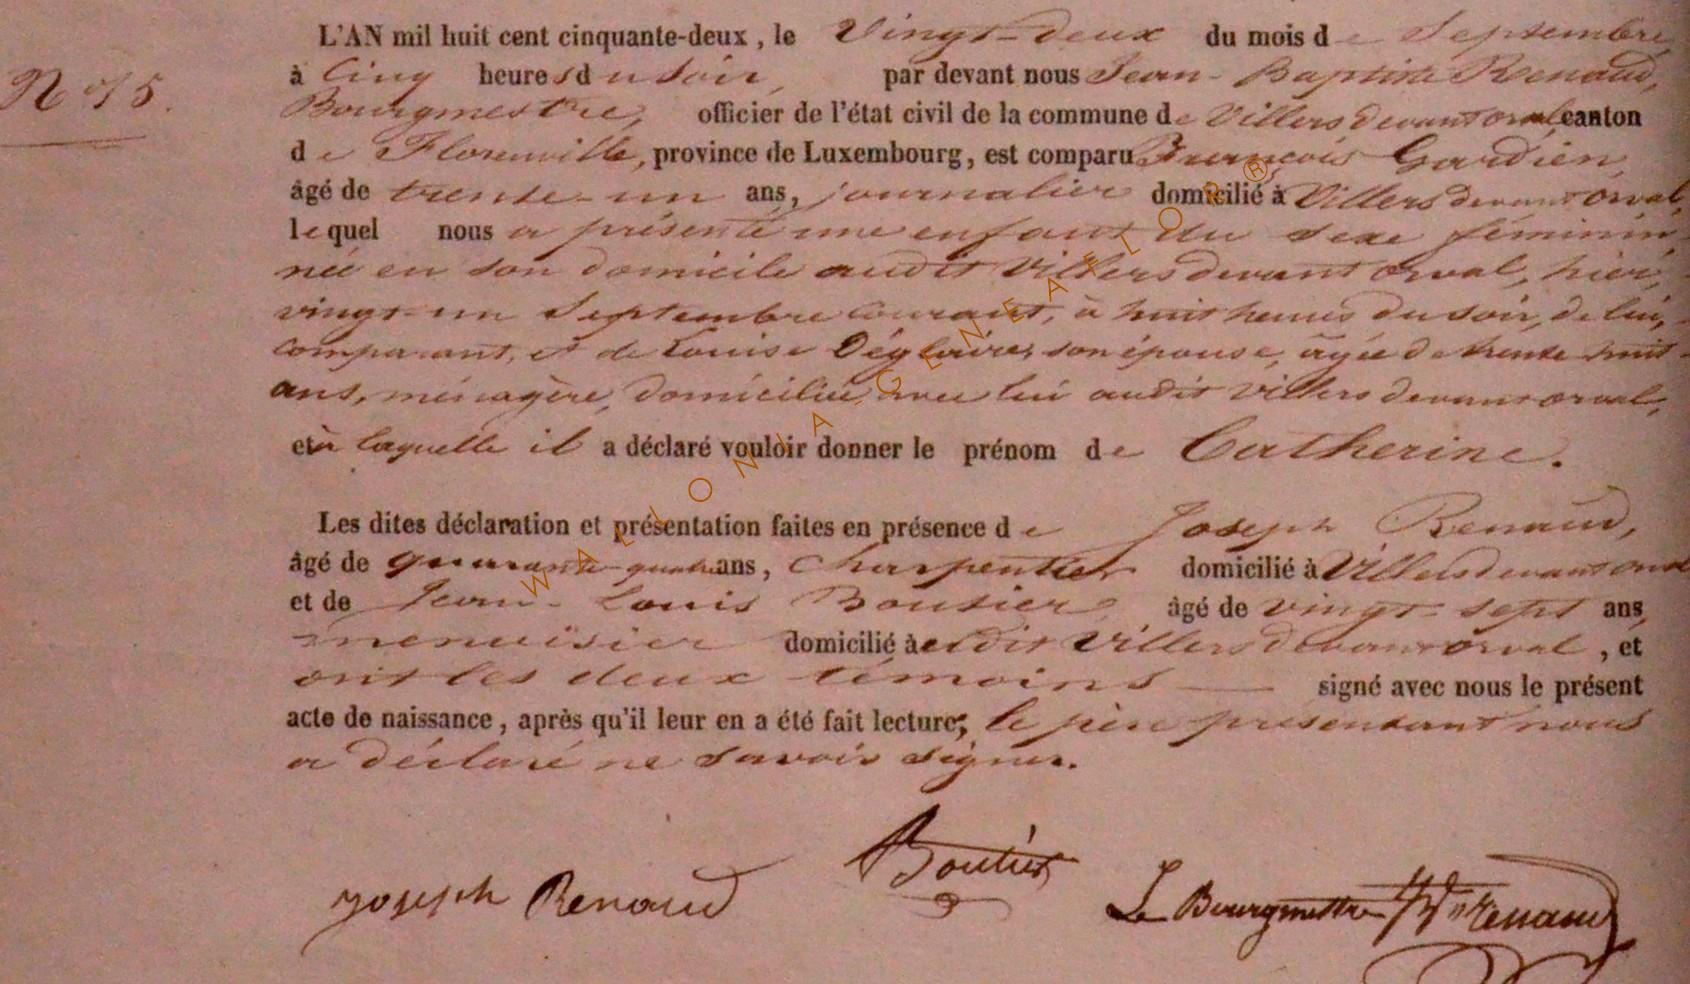 L'AN mil huit cent cinquante-deux, le Vingt-deux du mois de Septembre
à Cinq heures du soir, par devant nous Jean-Baptiste Renaud,
N° 15.
Bourgmestre, officier de l'état civil de la commune de Villers devant orval, canton
de Florenville, province de Luxembourg, est comparu François Gardien,
âgé de trente-un ans, journalier domicilié à Villers devant orval,
lequel nous a présenté une enfant du sexe féminin,
née en son domicile audit Villers devant orval, hier,
vingt-un Septembre courant, à huit heures du soir, de lui,
comparant, et de Louise Déglaire, son épouse, âgée de trente-huit
ans, ménagère, domiciliée avec lui audit Villers devant orval,
et à laquelle il a déclaré vouloir donner le prénom de Catherine.
Les dites déclaration et présentation faites en présence de Joseph Renaud,
âgé de quarante-quatre ans, charpentier domicilié à Villers devant orval
et de Jean-Louis Boutier, âgé de vingt-sept ans
menuisier domicilié audit Villers devant orval, et
ont les deux témoins signé avec nous le présent
acte de naissance, après qu'il leur en a été fait lecture; le père présentant nous
a déclaré ne savoir signer.
Boutier
Joseph Renaud
Le Bourgmestre Renaud
WALLONIA GENEALOR ®